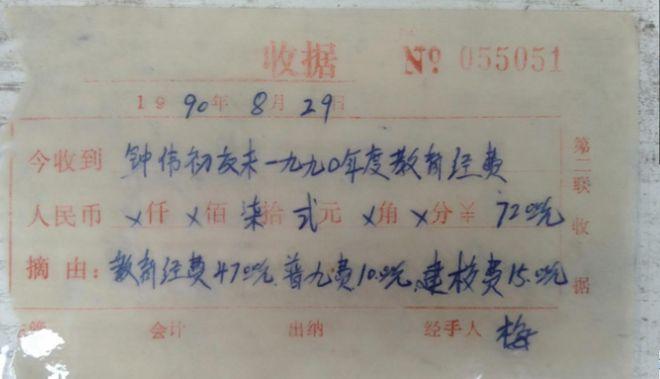 收据 № 055051
1990年8月29日
今收到 钟伟初交来一九九〇年度教育经费
人民币 ×仟×佰柒拾弍元×角×分¥ 72.00元
摘由：教育经费47.00元.普九费10.00元.建校费15.00元
会计 出纳 经手人 梅
第二联收据